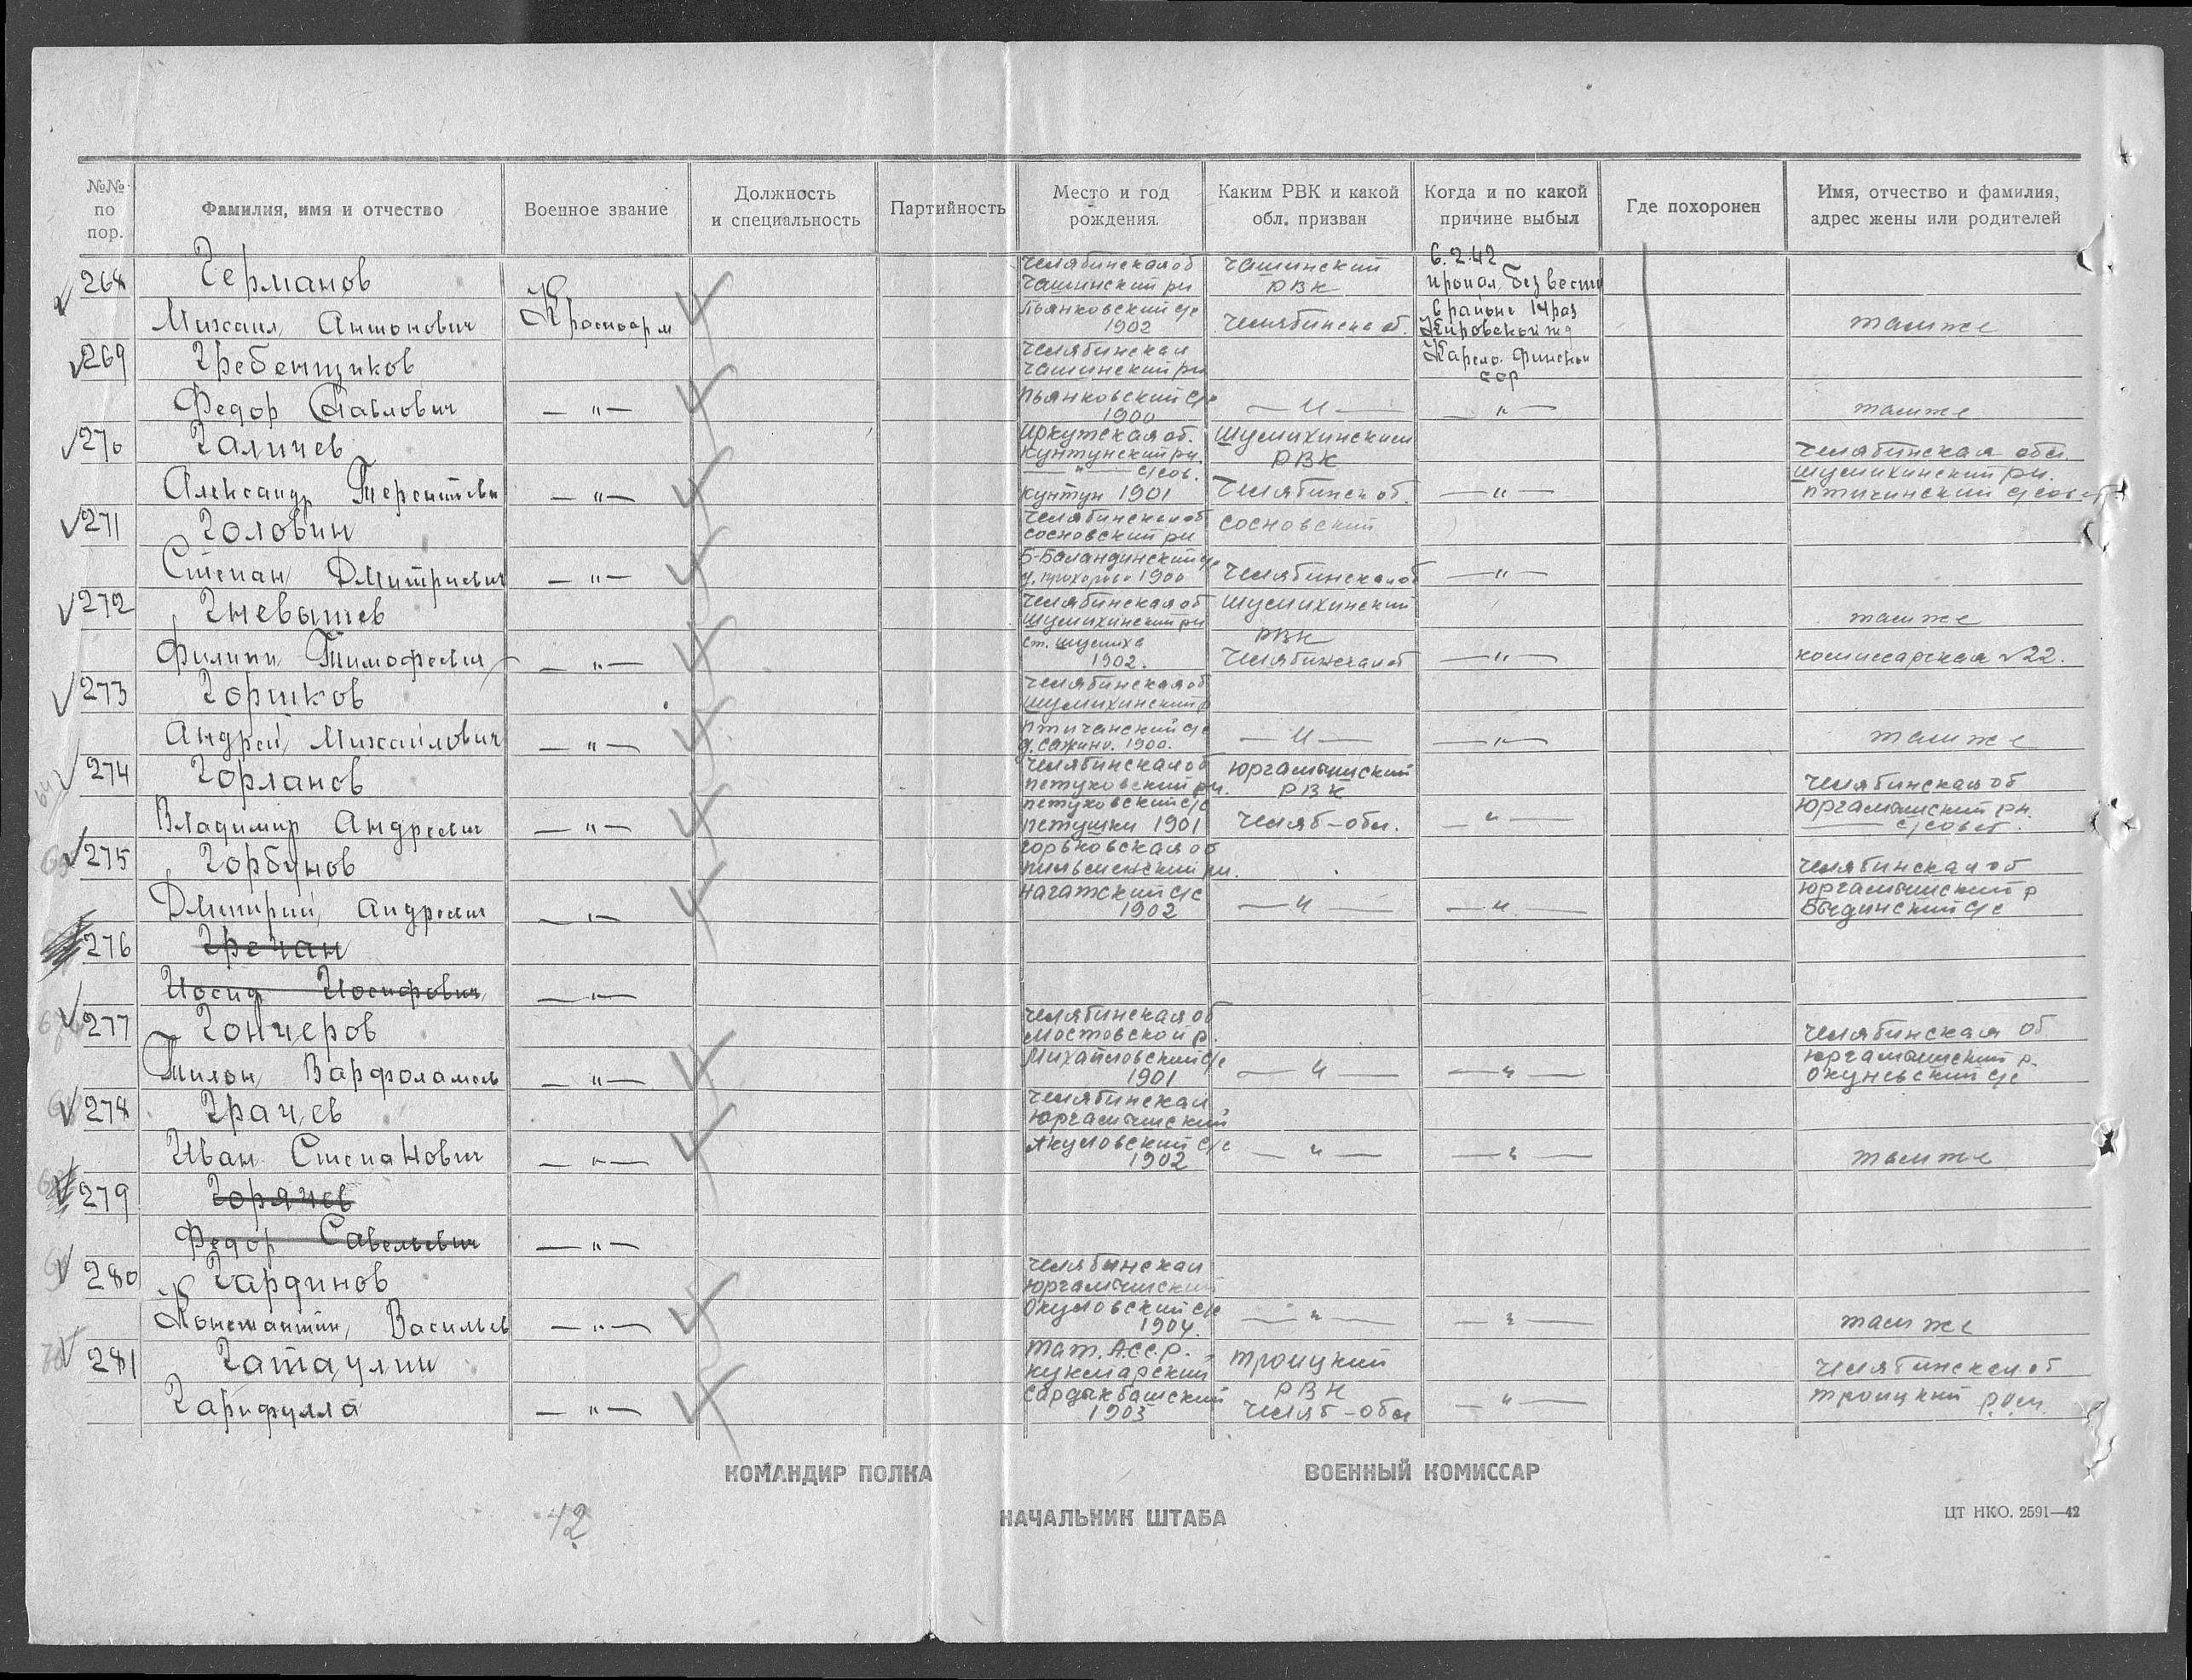 №№ по пор.
Фамилия, имя и отчество
Военное звание
Должность и специальность
Партийность
Место и год рождения
Каким РВК и какой обл. призван
Когда и по какой причине выбыл
Где похоронен
Имя, отчество и фамилия, адрес жены или родителей
268 Германов
Михаил Антонович
Красноарм
Челябинская об
Чашинский рн
Пьянковский с/с
1902
Чашинский
РВК
Челябинска об.
6.2.42
пропал без вести
в районе 14 раз
Кировской жд
Карело-Финской
ССР
там же
269 Гребенщиков
Федор Павлович
— " —
Челябинская
Чашинский рн
Пьянковский с/с
1900
— " —
— " —
там же
270 Галичев
Александр Терентьеви
— " —
Иркутская об.
Кунтунский рн.
— " — с/сов.
Кунтун 1901
Шумихинским
РВК
Челябинск об.
— " —
Челябинская обл.
Шумихинский рн.
Птичинский с/совет
271 Головин
Степан Дмитриевич
— " —
Челябинская об
Сосновский рн
Б-Баландинский с/с
1900
Сосновский
Челябинская об
— " —
272 Гневышев
Филипп Тимофеевич
— " —
Челябинская об
Шумихинский рн
ст. Шумиха
1902.
Шумихинский
РВК
Челябинская об
— " —
там же
комиссарская №22.
273 Горшков
Андрей Михайлович
— " —
Челябинская об
Шумихинский р
Птичанский с/с
д. Сажино. 1900.
— " —
— " —
там же
274 Горланов
Владимир Андреевич
— " —
Челябинская об
Петуховский рн.
Петуховский с/с
Петушки 1901
Юргамышский
РВК
Челяб-обл.
— " —
Челябинская об
Юргамышский рн.
—— с/совет.
275 Горбунов
Дмитрий Андреевич
— " —
Горьковская об
рн.
Нагатский с/с
1902
— " —
— " —
Челябинская об
Юргамышский р
с/с
276 Гречан
Иосиф Иосифович
— " —
277 Гончеров
Тихон Варфоламеев
— " —
Челябинская об
Мостовской р.
Михайловский с/с
1901
— " —
— " —
Челябинская об
Юргамышский р.
Окуневский с/с
278 Грачев
Иван Степанович
— " —
Челябинская
Юргамышский
Акуловский с/с
1902
— " —
— " —
там же
279 Горячев
Федор Савельевич
— " —
280 Гардинов
Константин Васильев
— " —
Челябинская
Юргамышский
Окуловский с/с
1904.
— " —
— " —
там же
281 Гатаулин
Гарифулла
— " —
Тат. А.С.С.Р.
Кукмарский
Сардыкбашский
1903
Троицкий
РВК
Челяб-обл
— " —
Челябинская об
Троицкий
КОМАНДИР ПОЛКА
ВОЕННЫЙ КОМИССАР
НАЧАЛЬНИК ШТАБА
ЦТ НКО. 2591—42
42